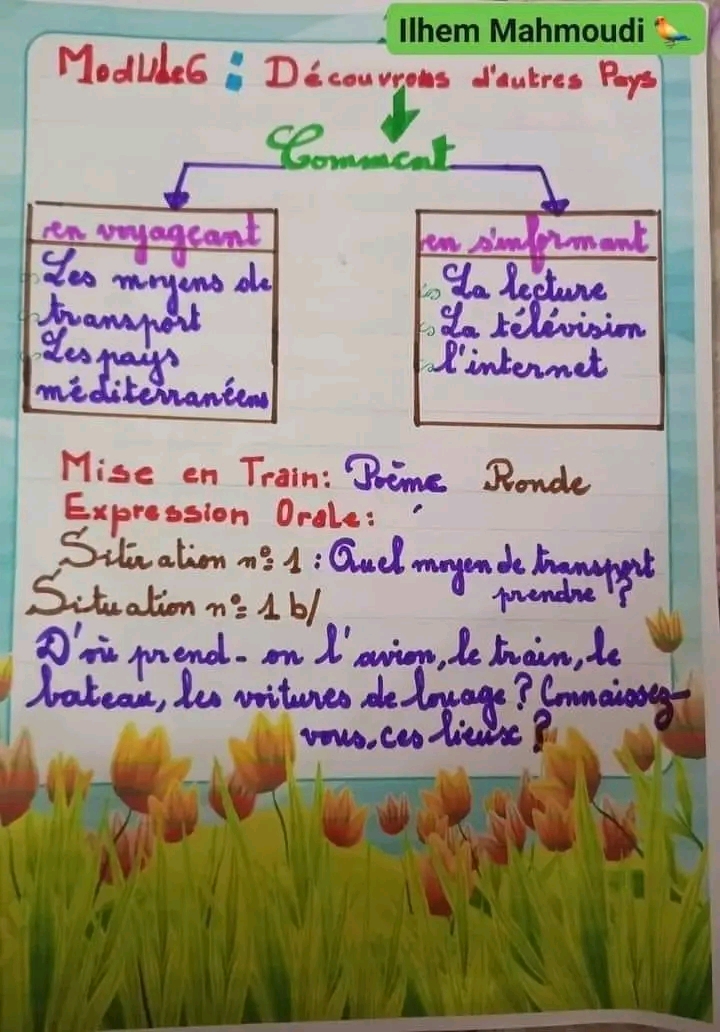 Ilhem Mahmoudi
Module6 : Découvrons d'autres Pays
Comment
en voyageant
Les moyens de
transport
Les pays
méditerranéens
en s'informant
La lecture
La télévision
l'internet
Mise en Train: Poème Ronde
Expression Orale:
Situation n°: 1 : Quel moyen de transport
prendre ?
Situation n°: 1 b/
D'où prend-on l'avion, le train, le
bateau, les voitures de louage ? Connaissez-
vous, ces lieux ?